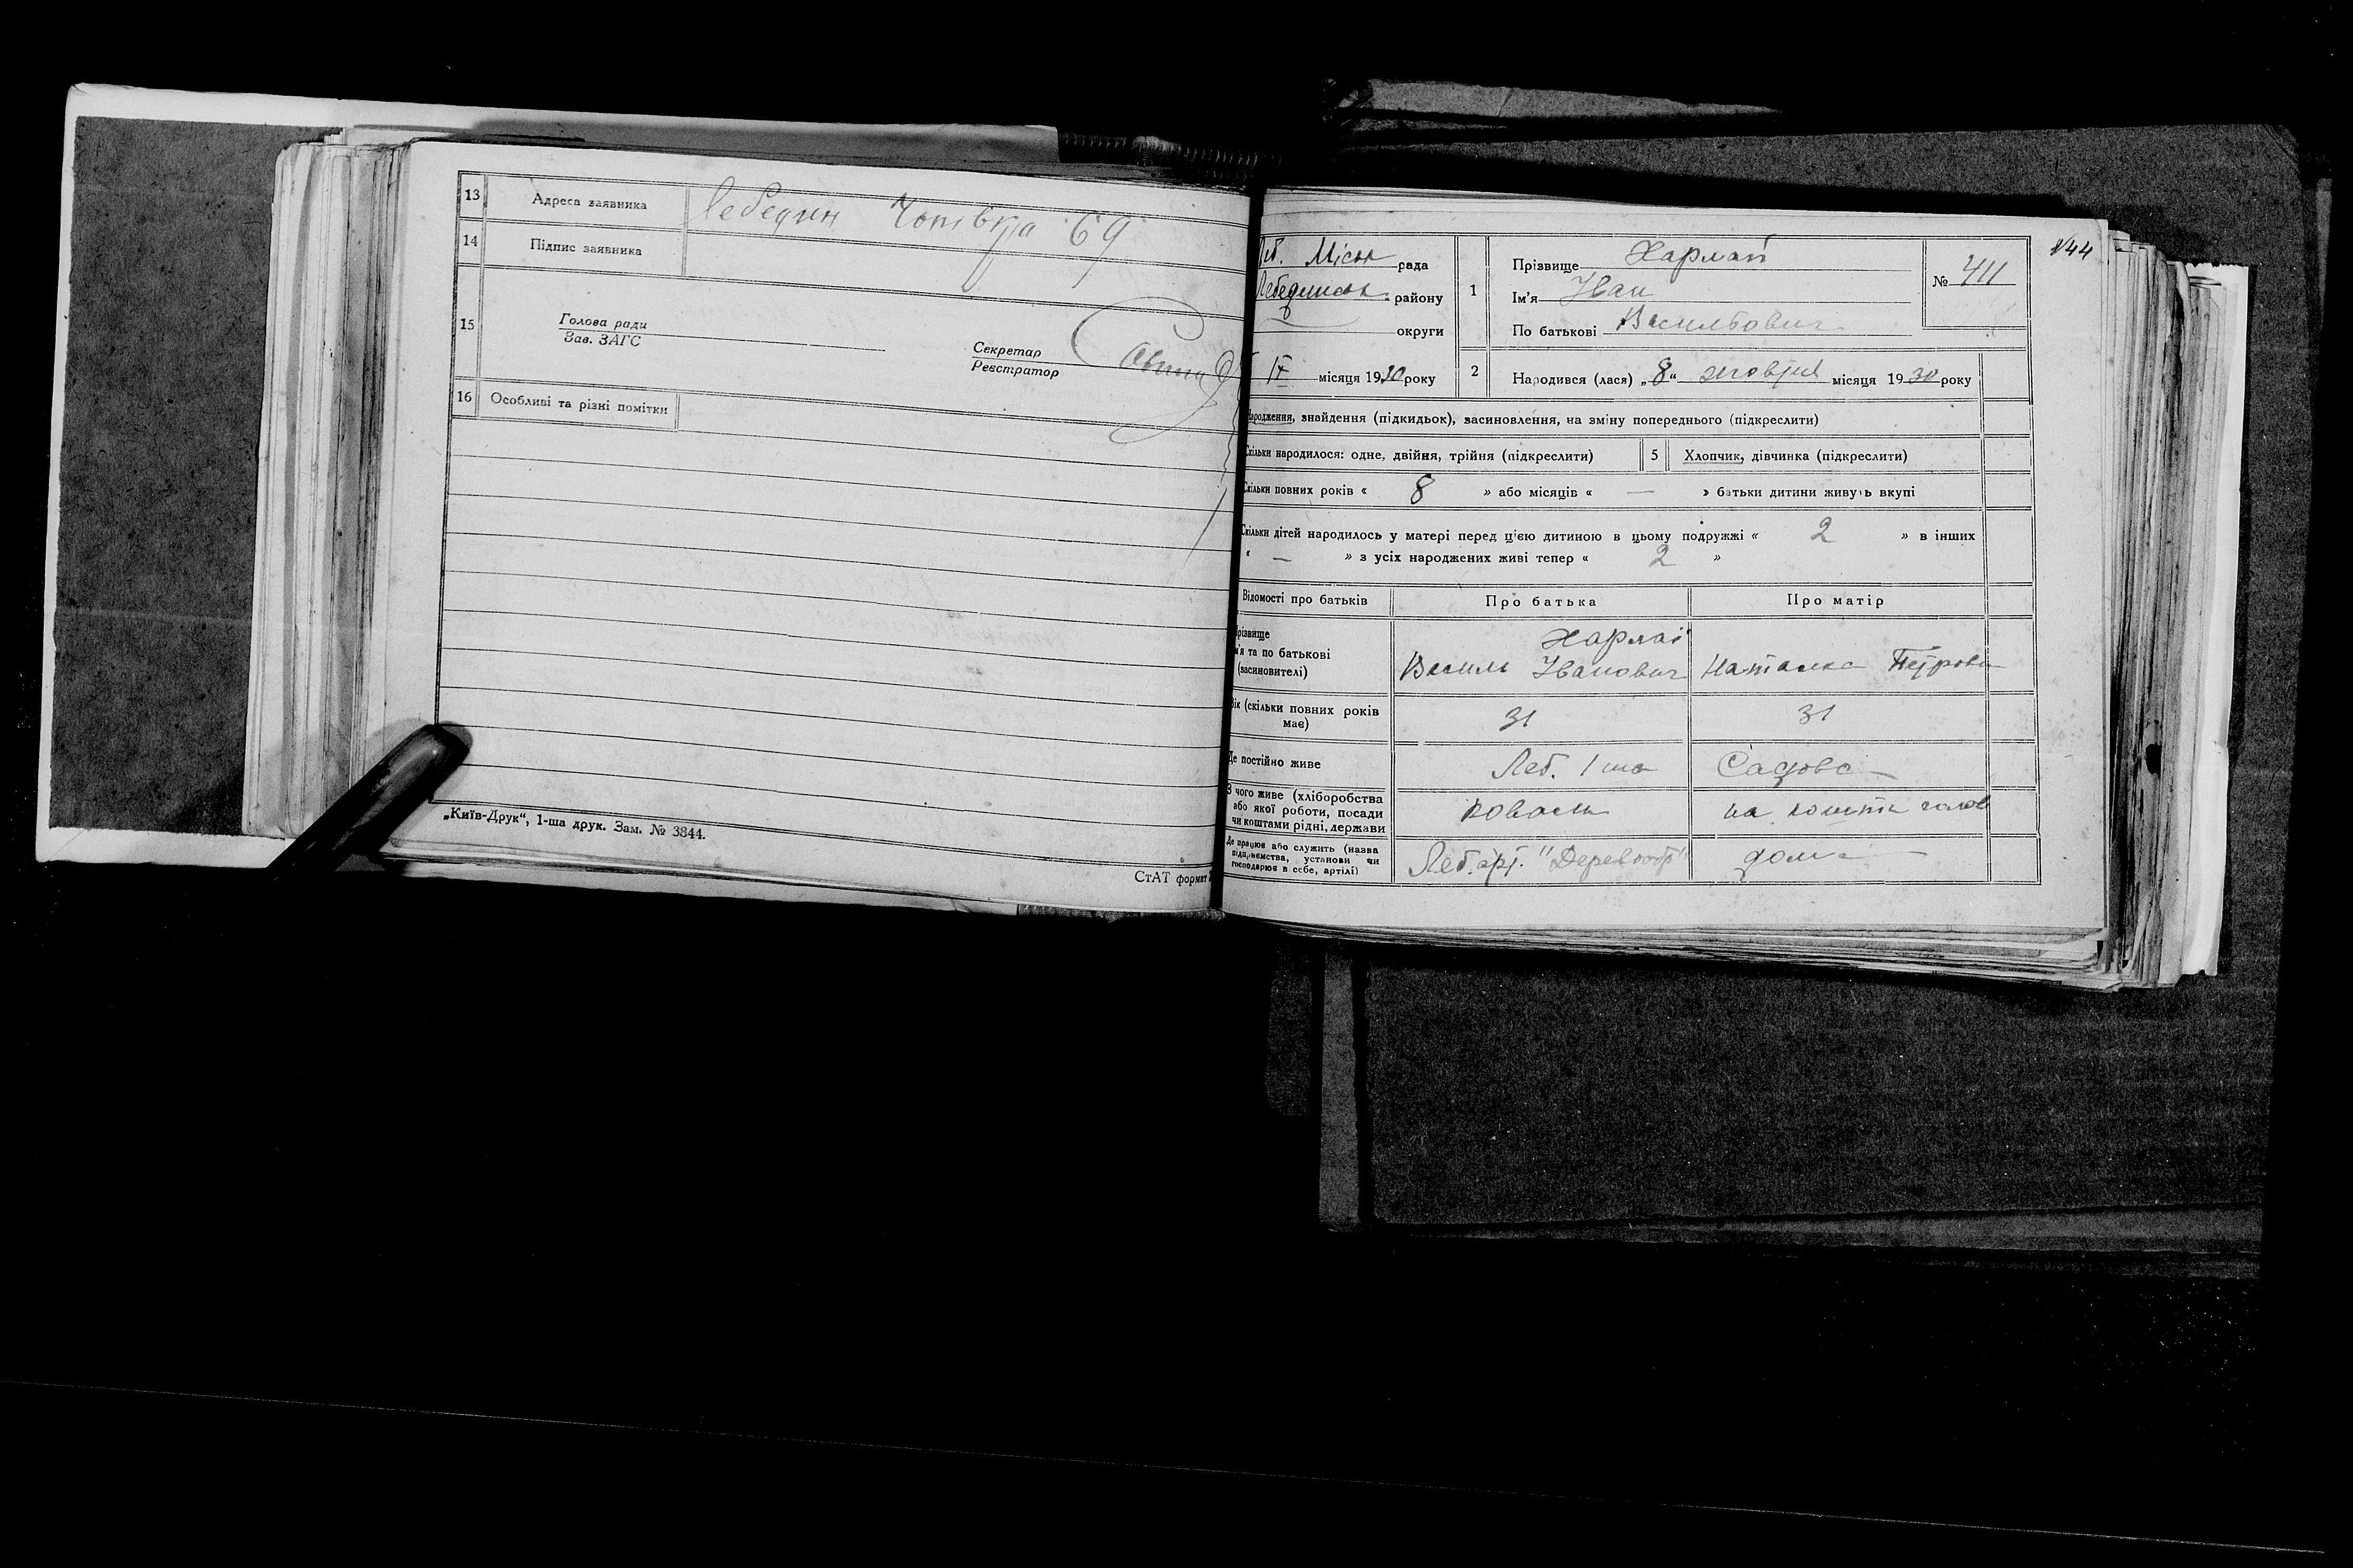 13 Адреса заявника Лебедин Чопівка 69
14 Підпис заявника
15 Голова ради
Зав. ЗАГС
Секретар
Реєстратор
16 Особливі та різні помітки
„Київ-Друк“, 1-ша друк. Зам. № 3844.
СтАТ формат
144
Леб. Міськ рада
Лебединськ району
округи
місяця 1930 року
1 Прізвище Харлай
Ім'я Іван
По батькові Васильович
№ 411
2 Народився (лася) „8“ жовтня місяця 1930 року
Народження, знайдення (підкидьок), засиновлення, на зміну попереднього (підкреслити)
Скільки народилося: одне, двійня, трійня (підкреслити) 5 Хлопчик, дівчинка (підкреслити)
Скільки повних років « 8 » або місяців « — » батьки дитини живуть вкупі
Скільки дітей народилось у матері перед цією дитиною в цьому подружжі « 2 » в інших
« — » з усіх народжених живі тепер « 2 »
Відомості про батьків Про батька Про матір
Прізвище Харлаї
ім'я та по батькові Василь Іванович Наталка Петрова
(засиновителі)
Вік (скільки повних років має) 31 31
Де постійно живе Леб. 1 ша Садова —
З чого живе (хліборобства або якої роботи, посади чи коштами рідні, держави коваль на кошти чолов
Де працює або служить (назва підприємства, установи чи господарює в себе, артілі) Леб. арт. "Деревообр" дома —